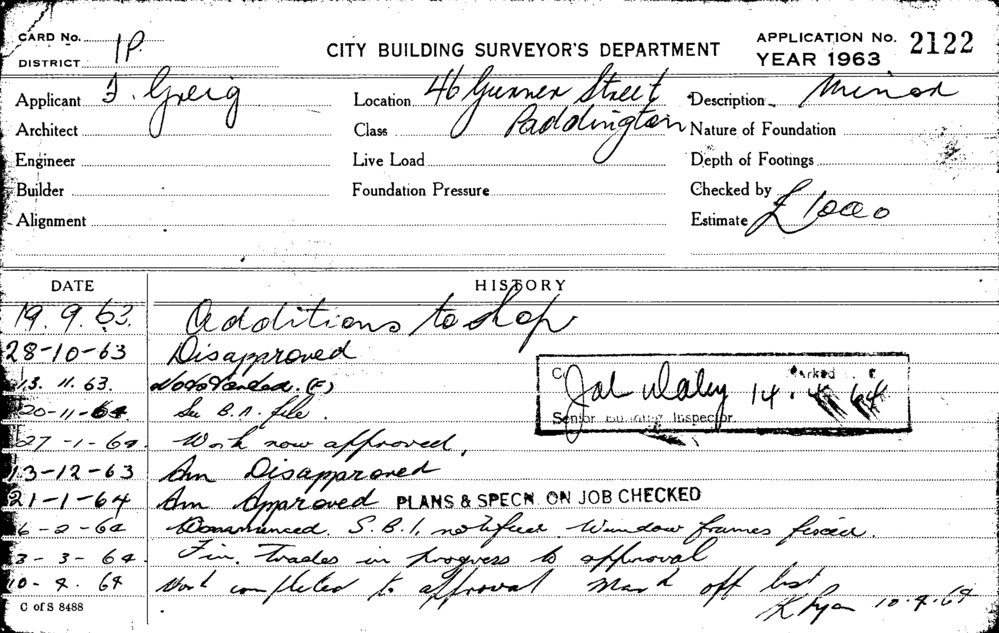 CARD No.
1P.
DISTRICT
CITY BUILDING SURVEYOR'S DEPARTMENT
APPLICATION No. 2122
YEAR 1963
Applicant J. Greig
Location 46 Gurner Street
Description Minor
Architect
Class Paddington
Nature of Foundation
Engineer
Live Load
Depth of Footings
Builder
Foundation Pressure
Checked by
Alignment
Estimate £1000
DATE HISTORY
19.9.63. Additions to shop
28-10-63 Disapproved
13. 11. 63.
20-11-64 See B.A. file.
27-1-64. Work now approved,
13-12-63 Am Disapproved
21-1-64 Am Approved PLANS & SPECN. ON JOB CHECKED
6-2-64 Commenced. S.B.I. notified. Window frames fixed.
3-3-64. Fin. Trades in progress to approval
10-4.64 Work completed to approval Mark off list
K Ryan 10.4.64
Daley 14.4.64
Senior Building Inspector.
C of S 8488